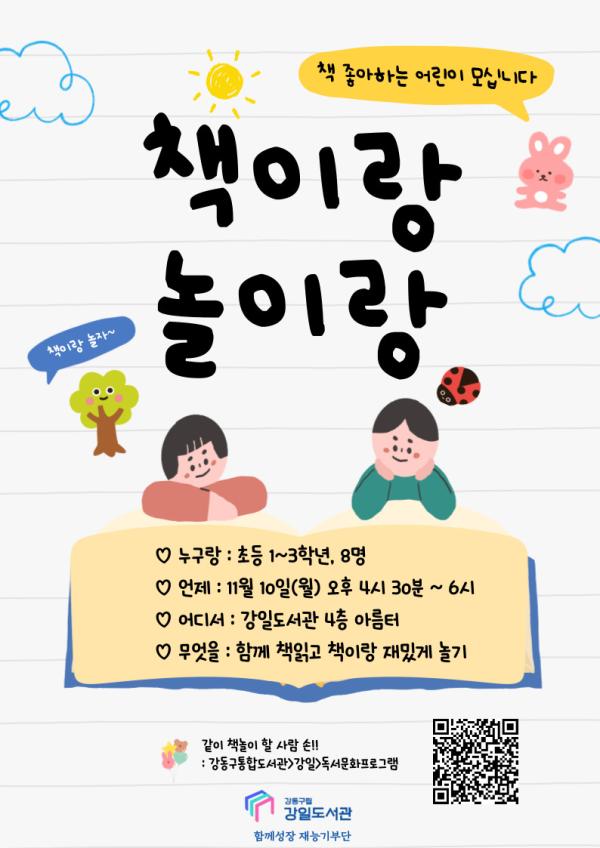 책 좋아하는 어린이 모십니다
책이랑
놀이랑
책이랑 놀자~
♡ 누구랑 : 초등 1~3학년, 8명
♡ 언제 : 11월 10일(월) 오후 4시 30분 ~ 6시
♡ 어디서 : 강일도서관 4층 아름터
♡ 무엇을 : 함께 책읽고 책이랑 재밌게 놀기
같이 책놀이 할 사람 손!!
: 강동구통합도서관>강일>독서문화프로그램
강동구립
강일도서관
함께성장 재능기부단